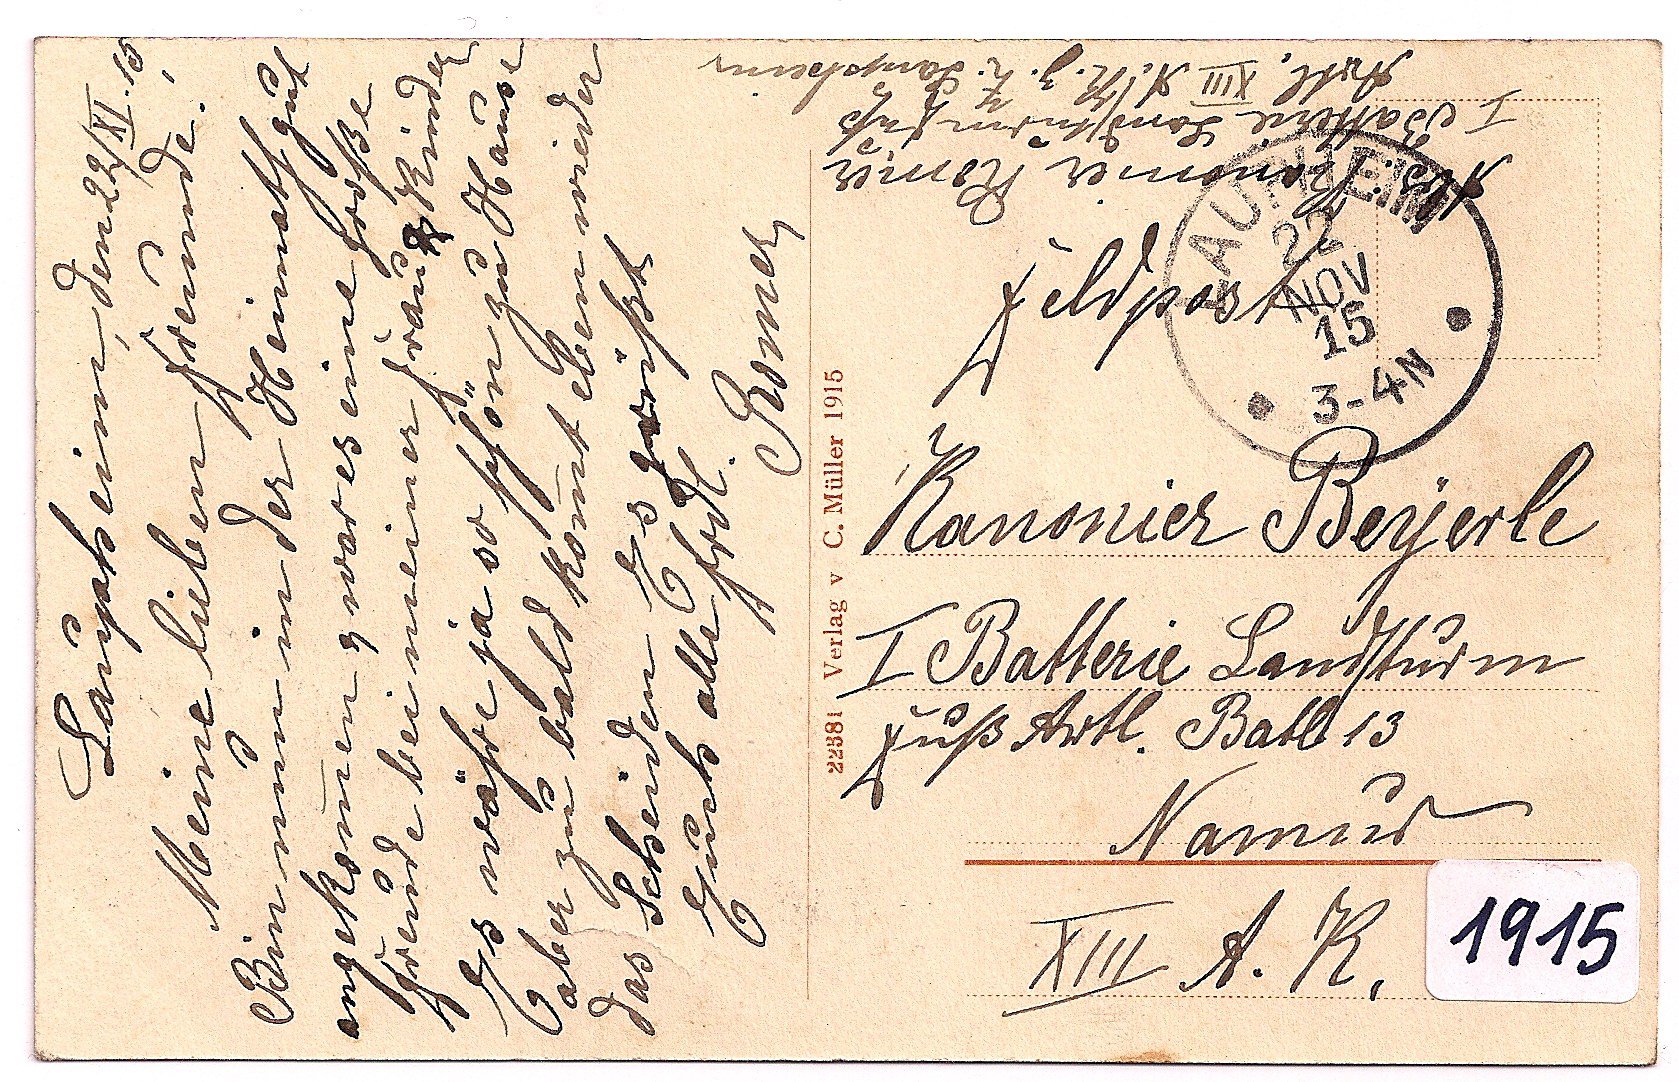 Laupheim, den 22/XI. 15.
Meine lieben Freunde!
Bin nun in der Heimath gut
angekomen, war es eine große
Freude bei meiner Frau & Kinder
Es währe ja so schön zu Hause
aber zu bald komt eben wieder
das Scheiden Es grüßt
Euch alle frdl.
Romer
22381 Verlag v C. Müller 1915
Abs. Kanonier Romer
I Batterie Landsturm Fuß
Artl. XIII A.K. z. Z. Laupheim
Feldpost
LAUPHEIM
22
NOV
15
3-4N
Kanonier Beyerle
I Batterie Landsturm
Fuß Artl. Batl 13
Namur
XIII A. K.
1915